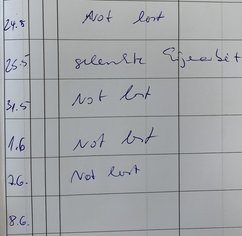 24.5 Not lost
25.5 gelenkte Eigenarbeit
31.5 Not lost
1.6 Not lost
7.6. Not lost
8.6.